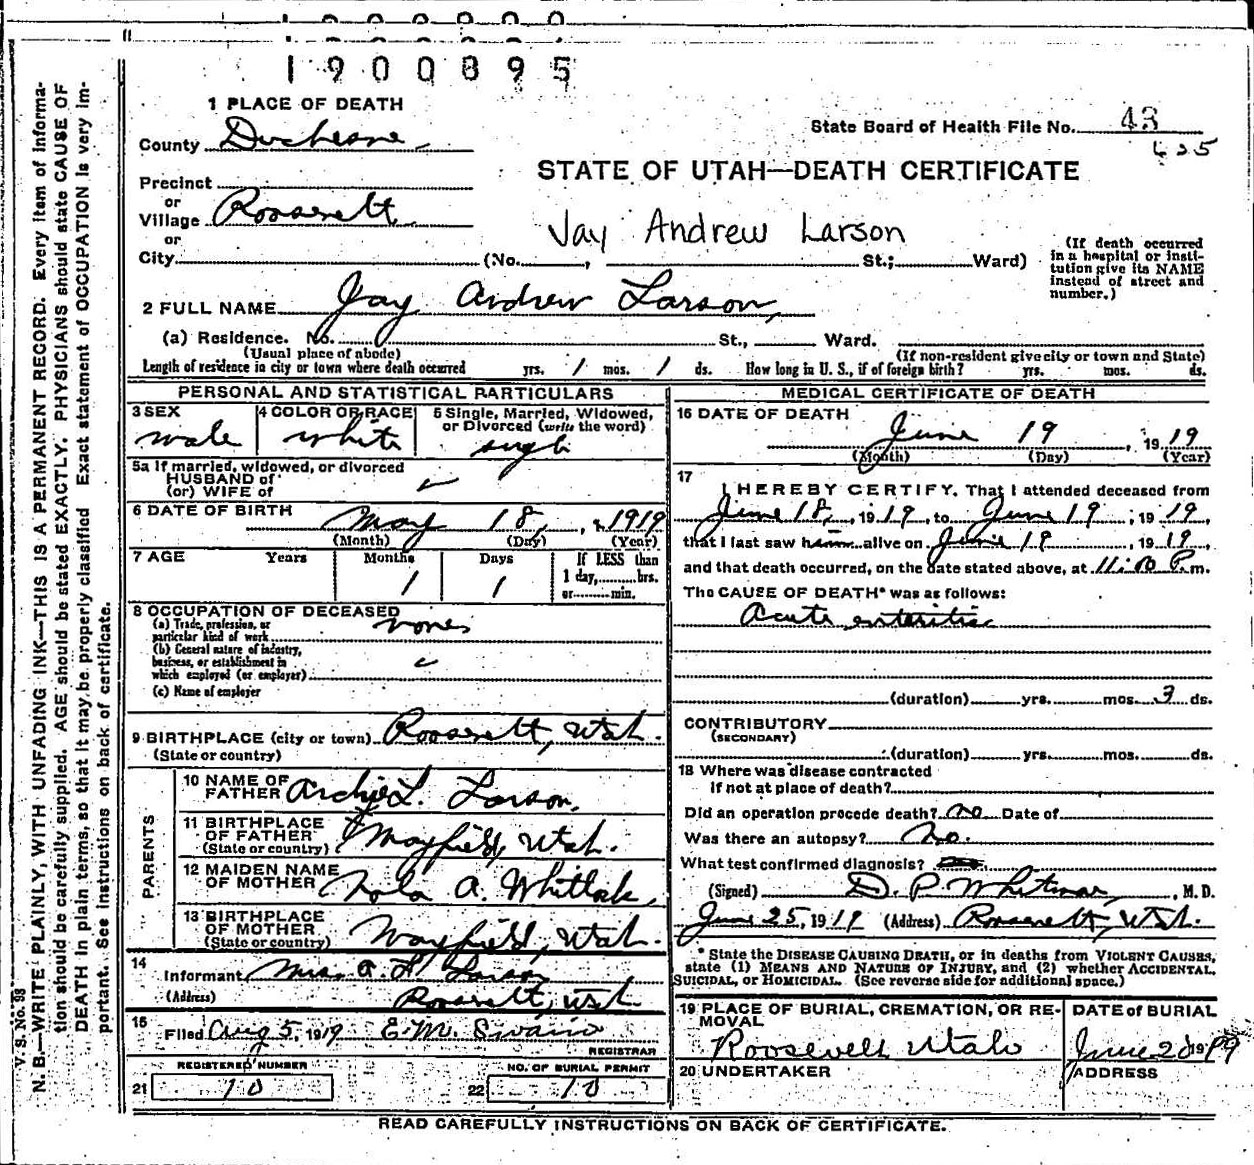 1900895
1 PLACE OF DEATH
County Duchesne
State Board of Health File No. 43
625
STATE OF UTAH—DEATH CERTIFICATE
Precinct
or
Village Roosevelt
or
Jay Andrew Larson
City (No. , St.; Ward)
(If death occurred
in a hospital or insti-
tution give its NAME
instead of street and
number.)
2 FULL NAME Jay Andrew Larson,
(a) Residence. No. St., Ward.
(Usual place of abode) (If non-resident give city or town and State)
Length of residence in city or town where death occurred yrs. 1 mos. 1 ds. How long in U. S., if of foreign birth? yrs. mos. ds.
PERSONAL AND STATISTICAL PARTICULARS
3 SEX
male
4 COLOR OR RACE
white
5 Single, Married, Widowed,
or Divorced (write the word)
single
5a If married, widowed, or divorced
HUSBAND of
(or) WIFE of
6 DATE OF BIRTH
May 18, , 1919
(Month) (Day) (Year)
7 AGE Years Months Days
1 1
If LESS than
1 day, hrs.
or min.
8 OCCUPATION OF DECEASED
(a) Trade, profession, or
particular kind of work none
(b) General nature of industry,
business, or establishment in
which employed (or employer)
(c) Name of employer
9 BIRTHPLACE (city or town) Roosevelt, Utah.
(State or country)
PARENTS
10 NAME OF
FATHER Archie L. Larson,
11 BIRTHPLACE
OF FATHER
(State or country) Mayfield, Utah.
12 MAIDEN NAME
OF MOTHER Nola A. Whitlock,
13 BIRTHPLACE
OF MOTHER
(State or country) Mayfield, Utah.
14
Informant Mrs. A. L. Larson
(Address) Roosevelt, Utah
15
Filed Aug 5, 1919 E. M. Swain
REGISTRAR
REGISTERED NUMBER
21 10
NO. OF BURIAL PERMIT
22 10
MEDICAL CERTIFICATE OF DEATH
16 DATE OF DEATH
June 19 , 1919
(Month) (Day) (Year)
17
I HEREBY CERTIFY. That I attended deceased from
June 18, , 1919, to June 19 , 1919,
that I last saw him alive on June 19 , 1919,
and that death occurred, on the date stated above, at P.m.
The CAUSE OF DEATH* was as follows:
Acute enteritis
(duration) yrs. mos. 3 ds.
CONTRIBUTORY
(SECONDARY)
(duration) yrs. mos. ds.
18 Where was disease contracted
if not at place of death?
Did an operation precede death? no Date of
Was there an autopsy? no.
What test confirmed diagnosis?
(Signed) D. P. Whitmore, M. D.
June 25, 1919 (Address) Roosevelt, Utah.
*State the DISEASE CAUSING DEATH, or in deaths from VIOLENT CAUSES,
state (1) MEANS AND NATURE OF INJURY, and (2) whether ACCIDENTAL,
SUICIDAL, or HOMICIDAL. (See reverse side for additional space.)
19 PLACE OF BURIAL, CREMATION, OR RE-
MOVAL
Roosevelt Utah
DATE of BURIAL
June 20 1919
20 UNDERTAKER
ADDRESS
READ CAREFULLY INSTRUCTIONS ON BACK OF CERTIFICATE.
V. S. No. 98
N. B.—WRITE PLAINLY, WITH UNFADING INK—THIS IS A PERMANENT RECORD. Every item of informa-
tion should be carefully supplied. AGE should be stated EXACTLY. PHYSICIANS should state CAUSE OF
DEATH in plain terms, so that it may be properly classified. Exact statement of OCCUPATION is very im-
portant. See instructions on back of certificate.